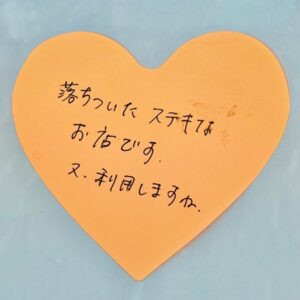 落ちついた ステキな
お店です.
又.利用しますね.